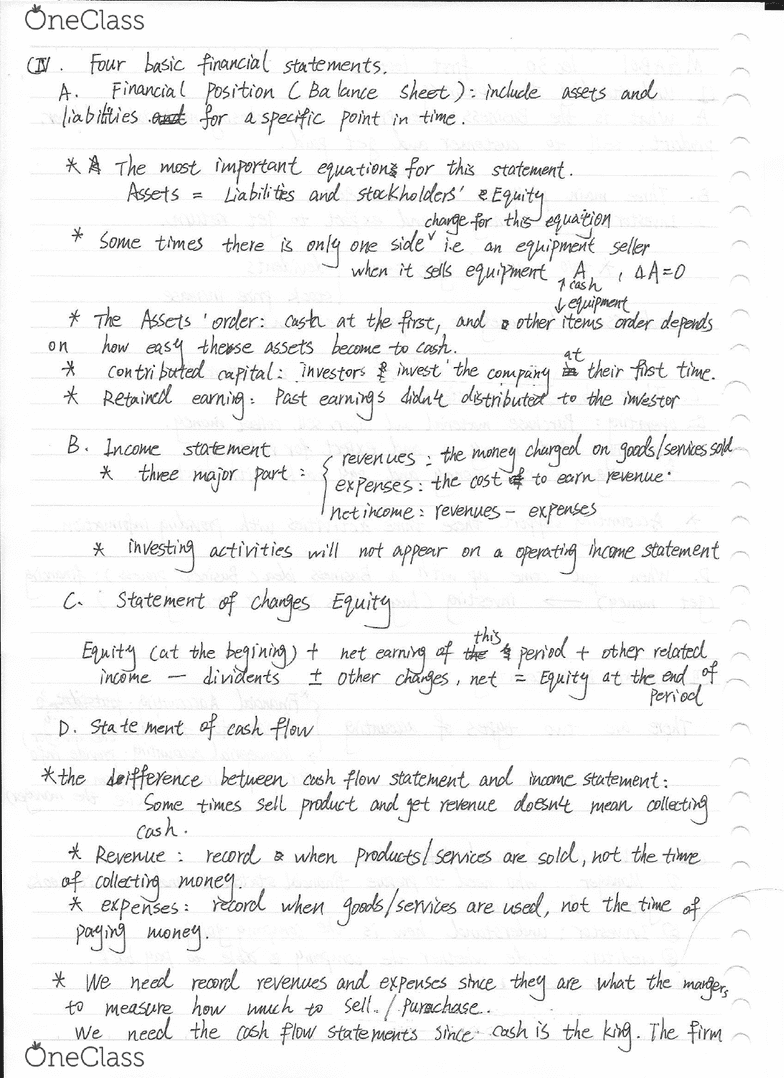 OneClass
(IV. Four basic financial statements.
A. Financial Position (Balance sheet): include assets and
liabilities and for a specific point in time.
* The most important equations for this statement.
Assets = Liabilities and stockholders' Equity
charge for this equation
* Some times there is only one side i.e an equipment seller
when it sells equipment A, ΔA=0
↑cash
↓equipment
* The Assets' order: cash at the first, and other items order depends
on how easy these assets become to cash.
at
* Contributed capital: investors invest the company in their first time.
* Retained earning: Past earnings didn't distributed to the investor
B. Income statement
revenues: the money charged on goods/services sold
* three major part: { expenses: the cost of to earn revenue.
net income: revenues - expenses
* investing activities will not appear on a operating income statement
C. Statement of changes Equity
this
Equity (at the begining) + net earning of the period + other related
income - dividents ± other charges, net = Equity at the end of
period
D. Statement of cash flow
* the difference between cash flow statement and income statement:
Some times sell product and get revenue doesn't mean collecting
cash.
* Revenue: record when products/services are sold, not the time
of collecting money.
* expenses: record when goods/services are used, not the time of
paying money.
* We need record revenues and expenses since they are what the margers
to measure how much to sell./purachase..
We need the cash flow statements since cash is the king. The firm
OneClass